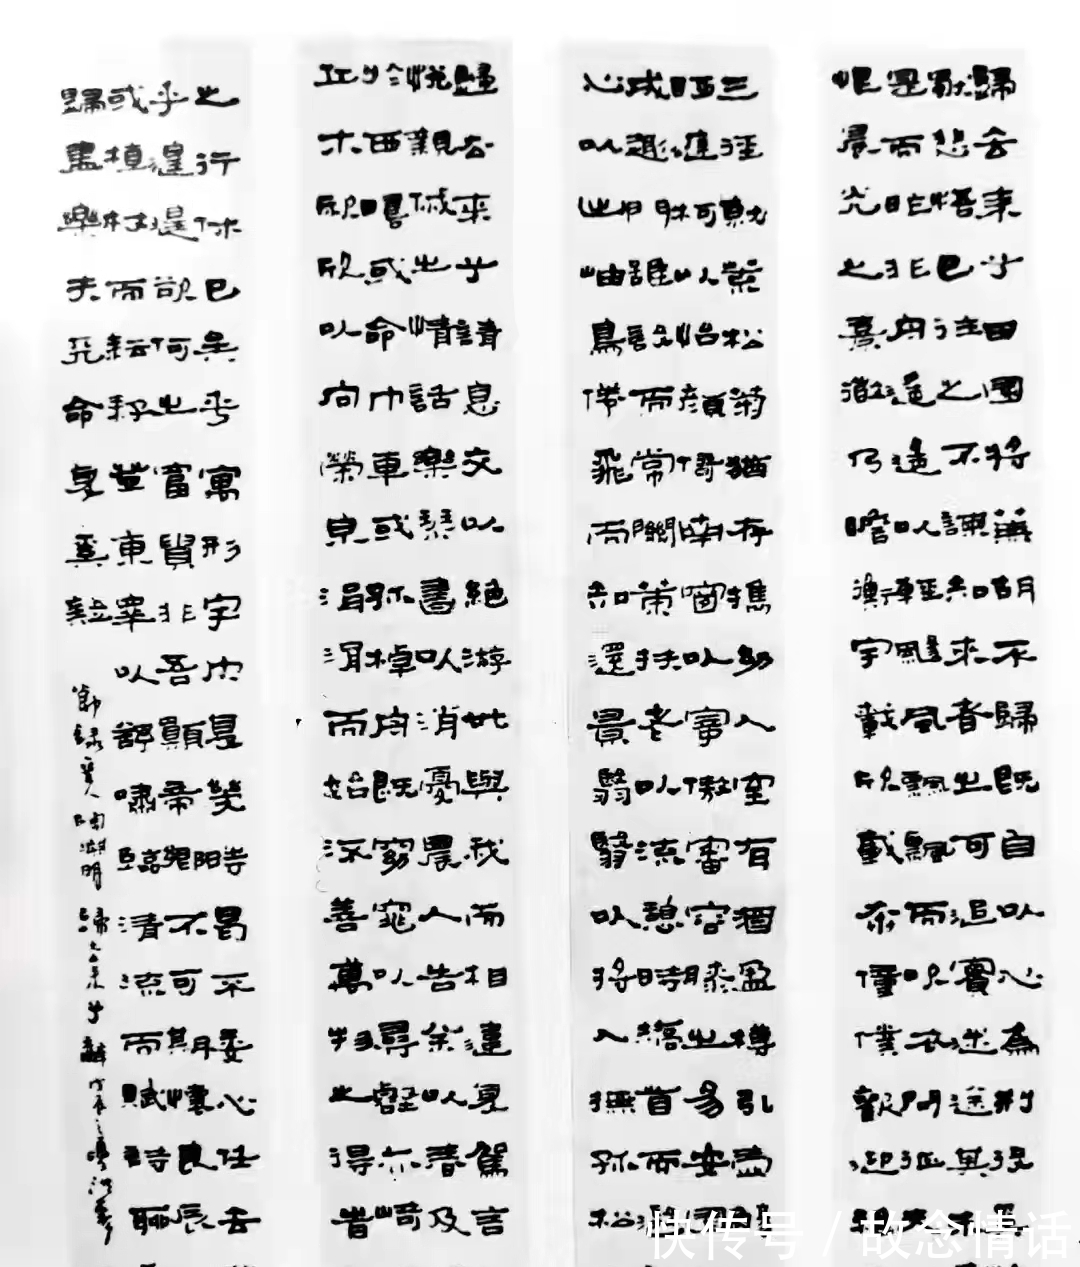 歸去来兮田園將蕪胡不歸既自以心為形役奚
獨悲悟已往之不諫知来者之可追實迷途其未
是而昨非舟遙遙以輕颺風飄飄而吹衣問征夫
恨晨光之熹微乃瞻衡宇載欣載奔僮僕歡迎稚
三徑就荒松菊猶存攜幼入室有酒盈樽引壺觴
眄庭柯以怡顏倚南窗以寄傲審容膝之易安園
成趣門雖設而常關策扶老以流憩時矯首而遐
心以出岫鳥倦飛而知還景翳翳以將入撫孤松
歸去来兮請息交以絕游世與我而相違復駕言
悅親戚之情話樂琴書以消憂農人告余以春及
於西疇或命巾車或孤棹舟既窈窕以尋壑亦崎
丘木欣欣以向榮泉涓涓而始流善萬物之得時
之行休已矣乎寓形宇內復幾時曷不委心任去
乎遑遑欲何之富貴非吾願帝鄉不可期懷良辰
或植杖而耘耔登東皋以舒嘯臨清流而賦詩聊
歸盡樂夫天命復奚疑
節錄晉人陶淵明歸去来兮辭
快传号/故念情话